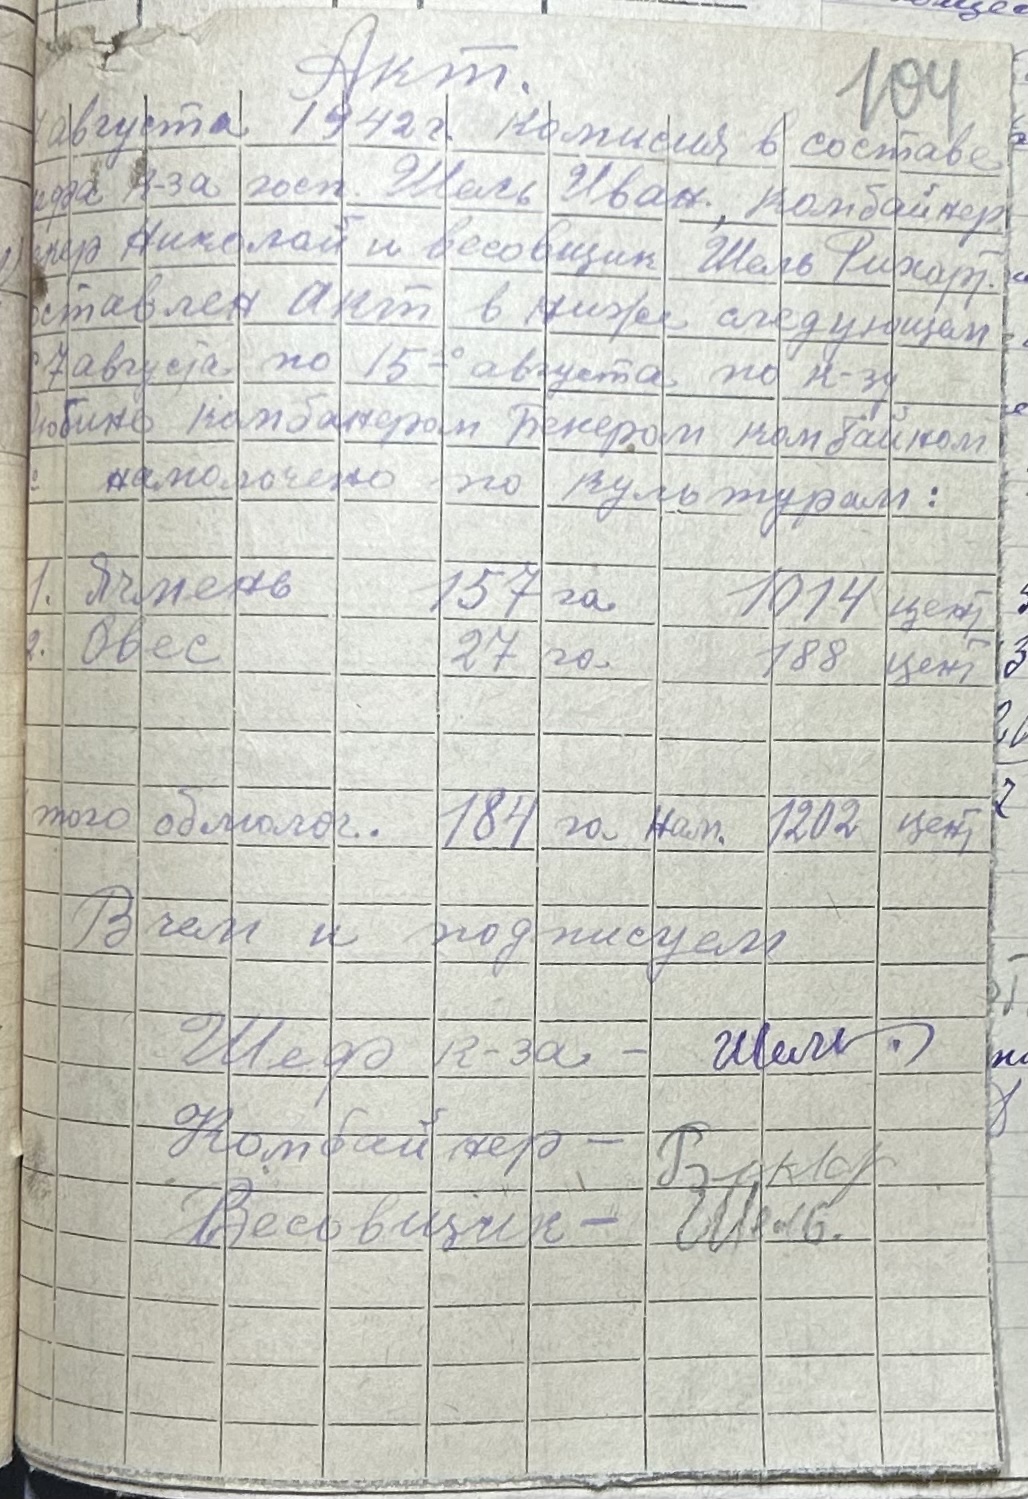 Акт.
104
августа 1942 г. комисия в составе
к-за хосп. Шель Иван., комбайнер
Николай и весовщик Шель Рихарт.
ставлен Акт в ниже следующем
7 августа по 15-е августа по к-зу
комбанером Бекером комбайном
намолочено по культурам:
1. Ячмень 157 га 1014 цент
2. Овес 27 га 188 цент
того обмолоч. 184 га нам. 1202 цент
В чем и подписуем
Шеф к-за - Шель
Комбайнер -
Весовщик - Шель.